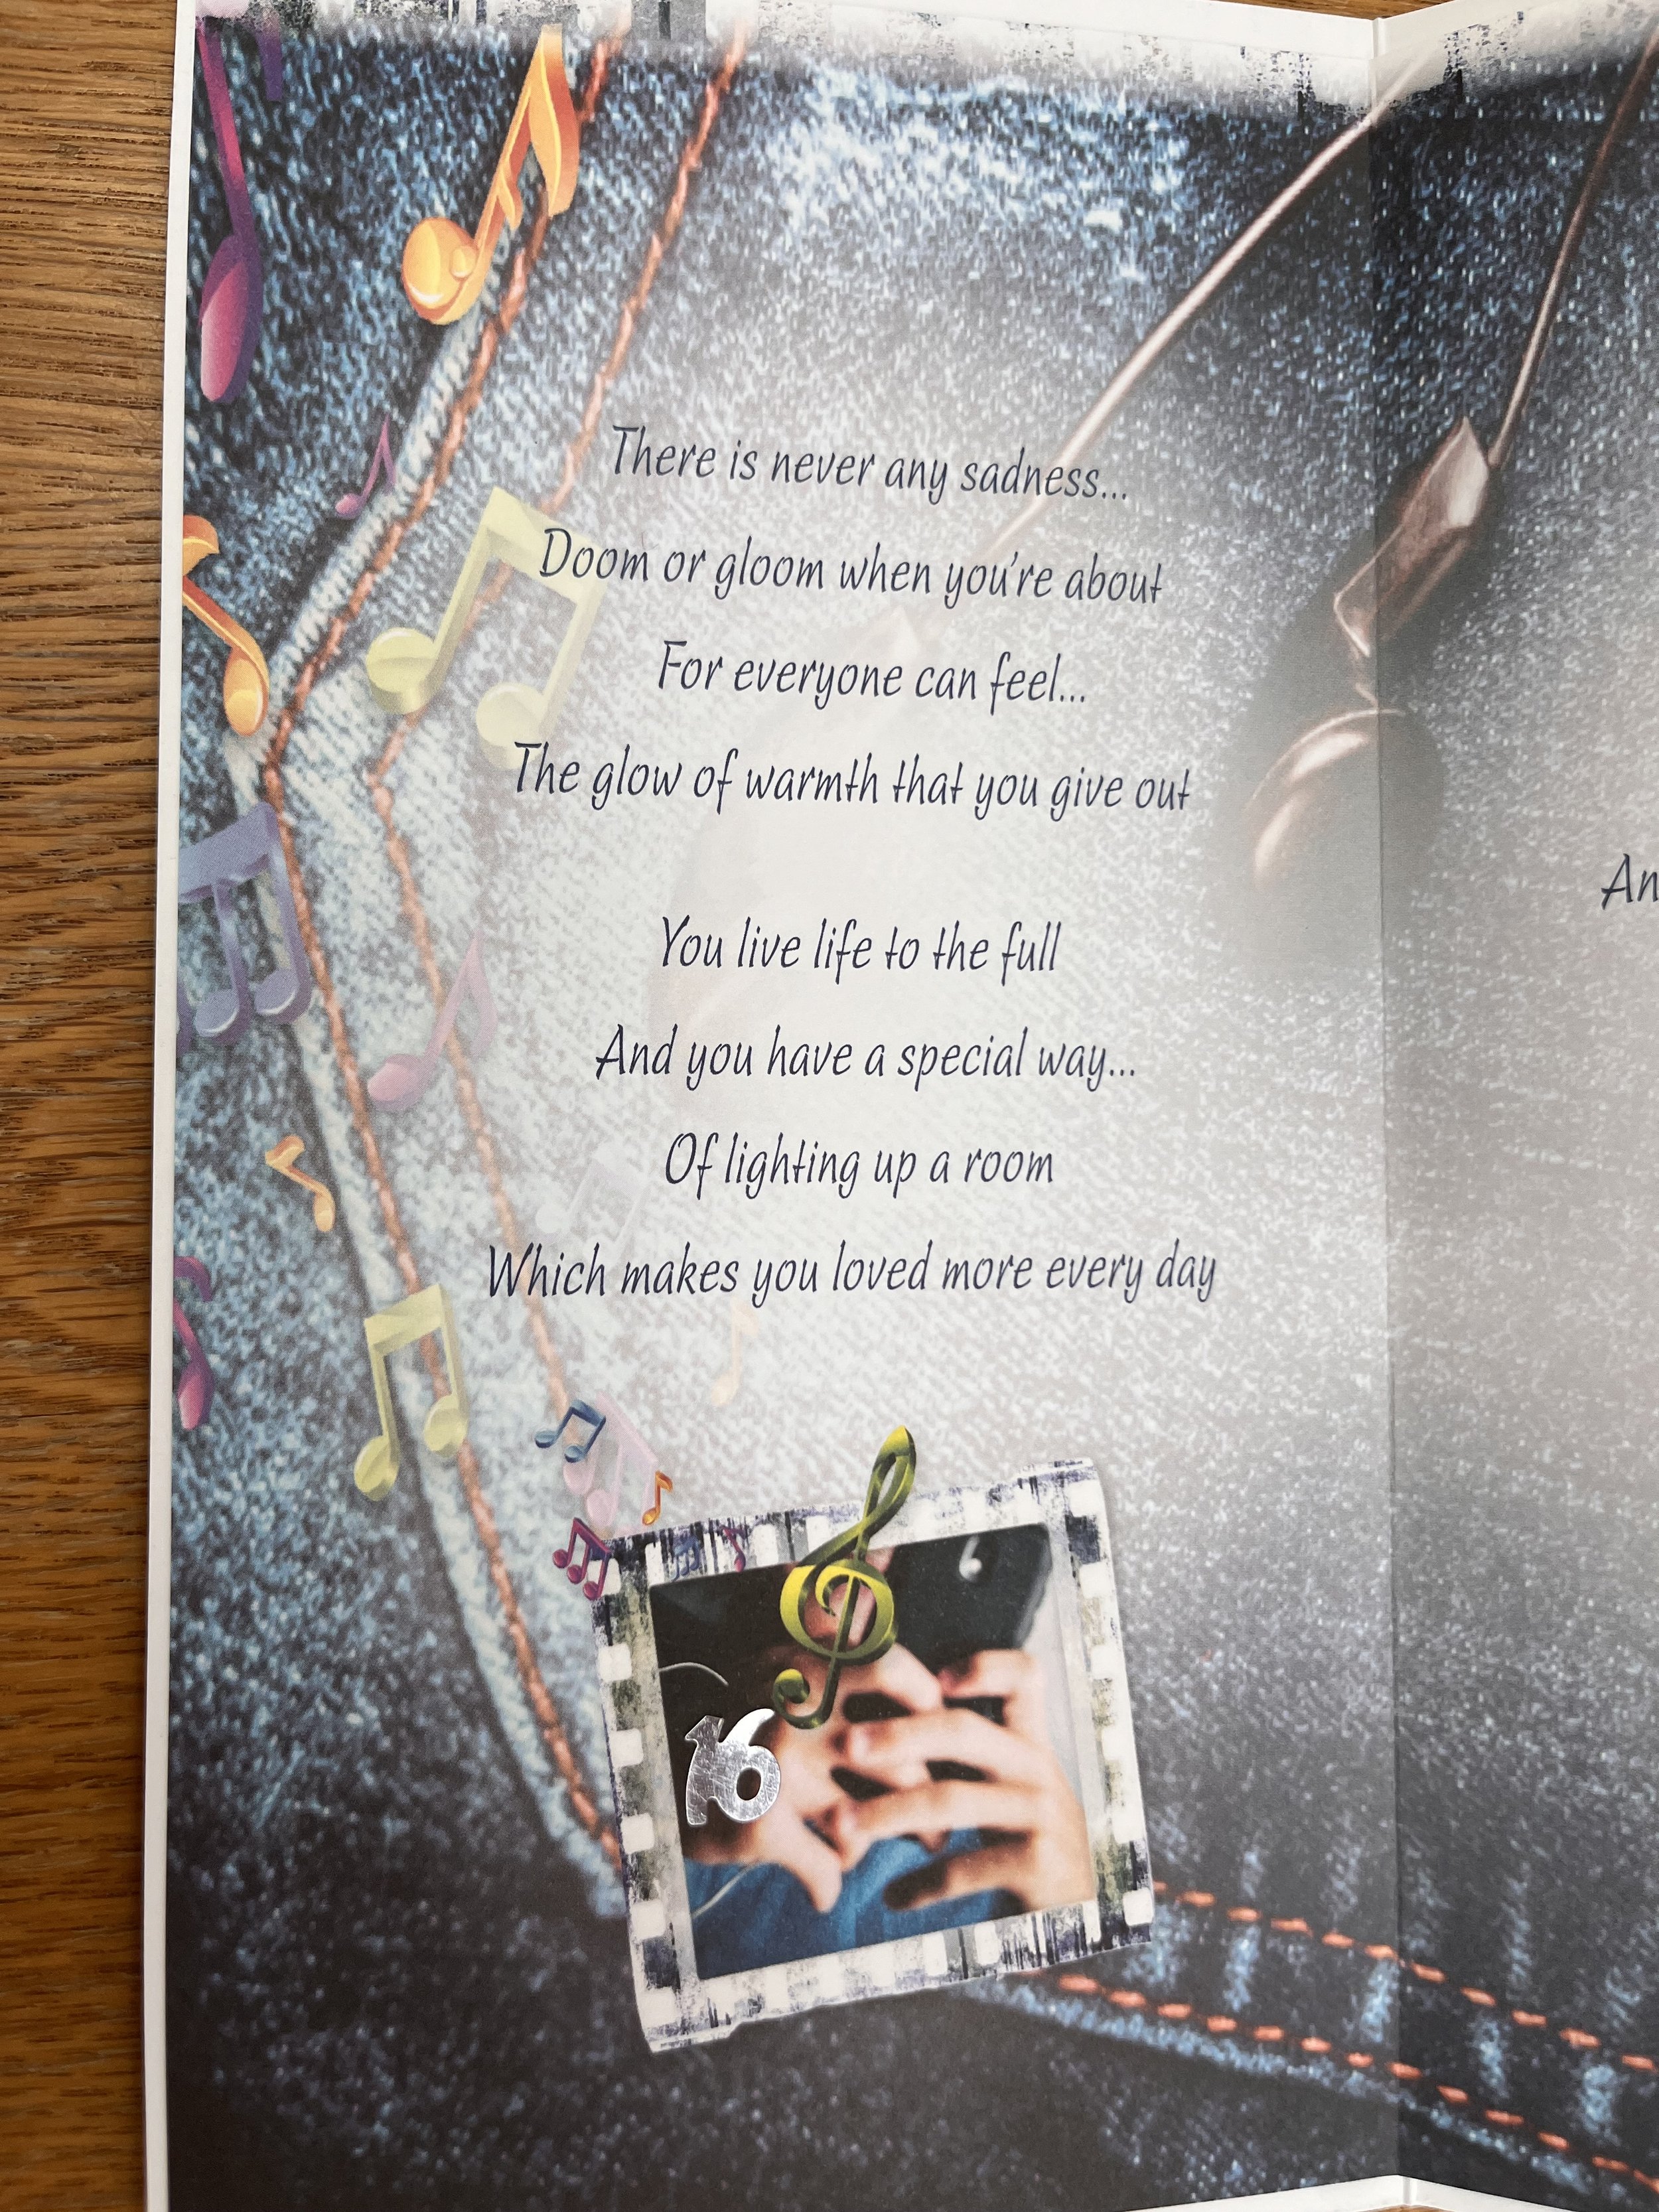 There is never any sadness...
Doom or gloom when you're about
For everyone can feel...
The glow of warmth that you give out
You live life to the full
And you have a special way...
Of lighting up a room
Which makes you loved more every day
16